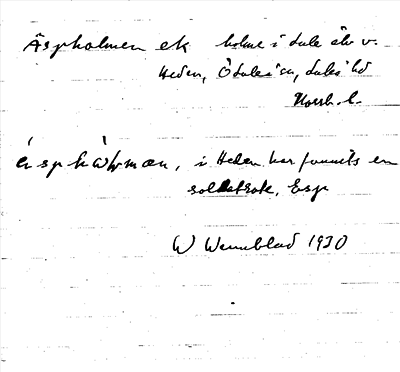 Äspholmen ek holme i Lule älv v.
Heden, Ö Luleå sn, Luleå hd
Norrb. l.
èspħàɷmæn, i Heden har funnits en
soldatrote, Esp
W Wennblad 1930